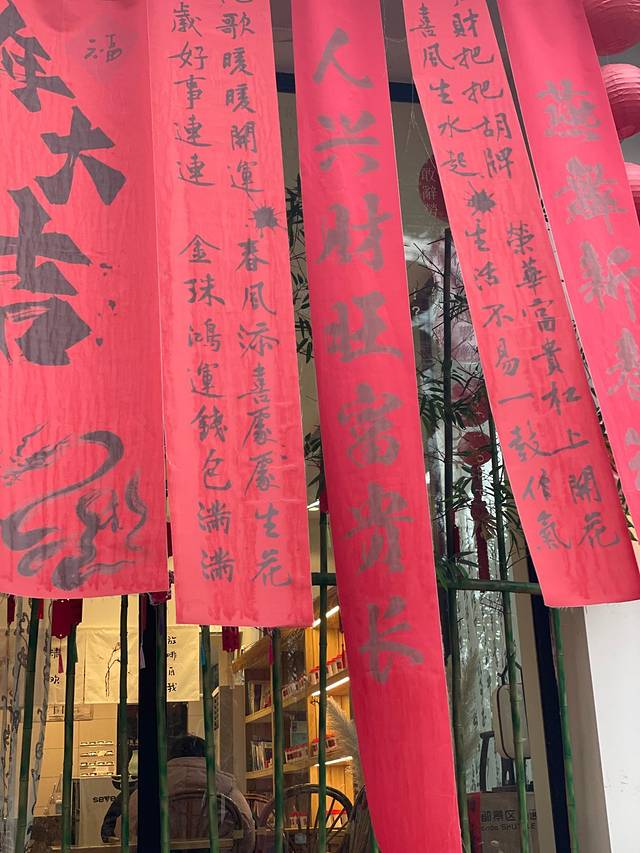 燕舞新春
財把把胡牌 榮華富貴杠上開花
喜风生水起 生活不易一鼓作氣
敢辭勞
人兴财旺富贵长
歌暖暖開運 春风添喜處處生花
歲好事連連 金珠鴻運錢包滿滿
福
大吉